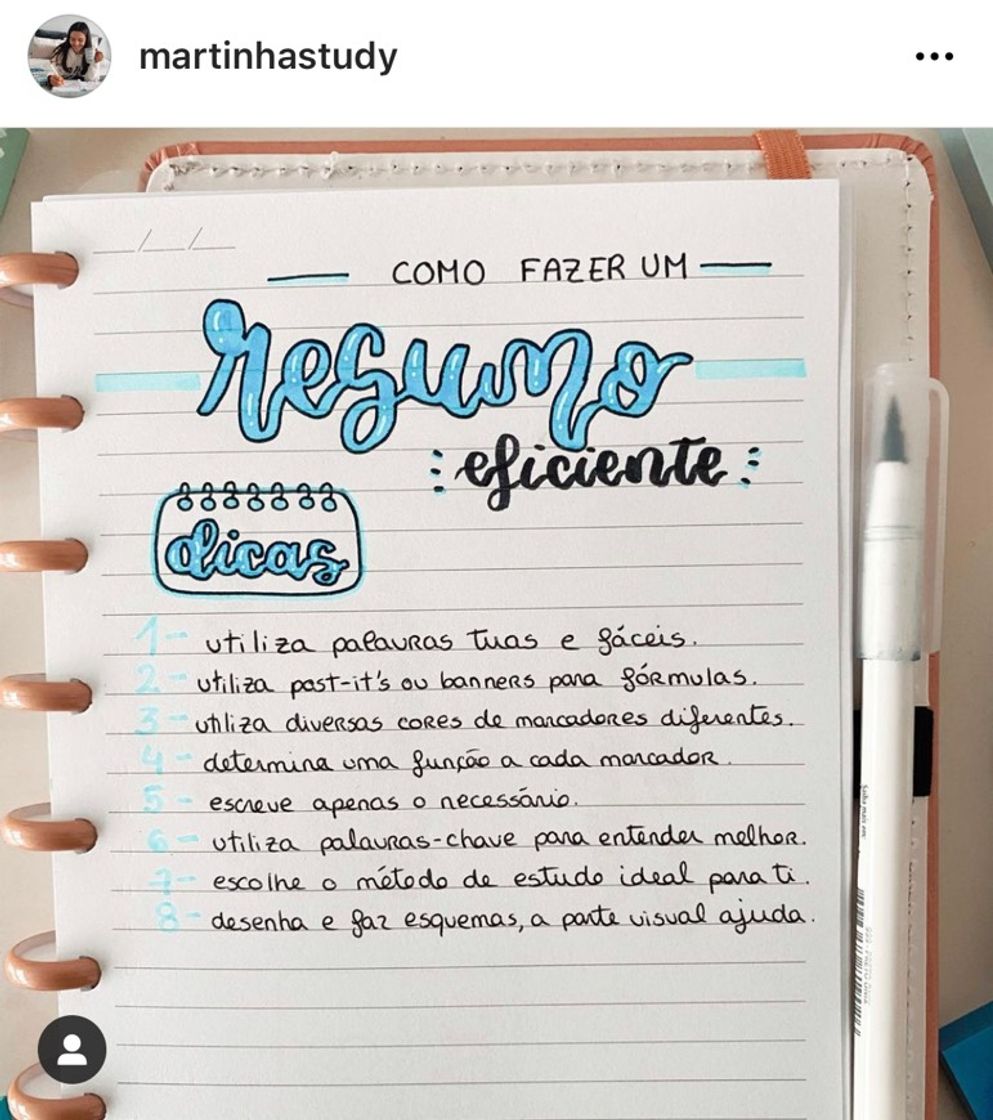 martinhastudy
__/__/__
COMO FAZER UM
resumo
eficiente
dicas
1- utiliza palavras tuas e fáceis.
2- utiliza post-it's ou banners para fórmulas.
3- utiliza diversas cores de marcadores diferentes.
4- determina uma função a cada marcador.
5- escreve apenas o necessário.
6- utiliza palavras-chave para entender melhor.
7- escolhe o método de estudo ideal para ti.
8- desenha e faz esquemas, a parte visual ajuda.